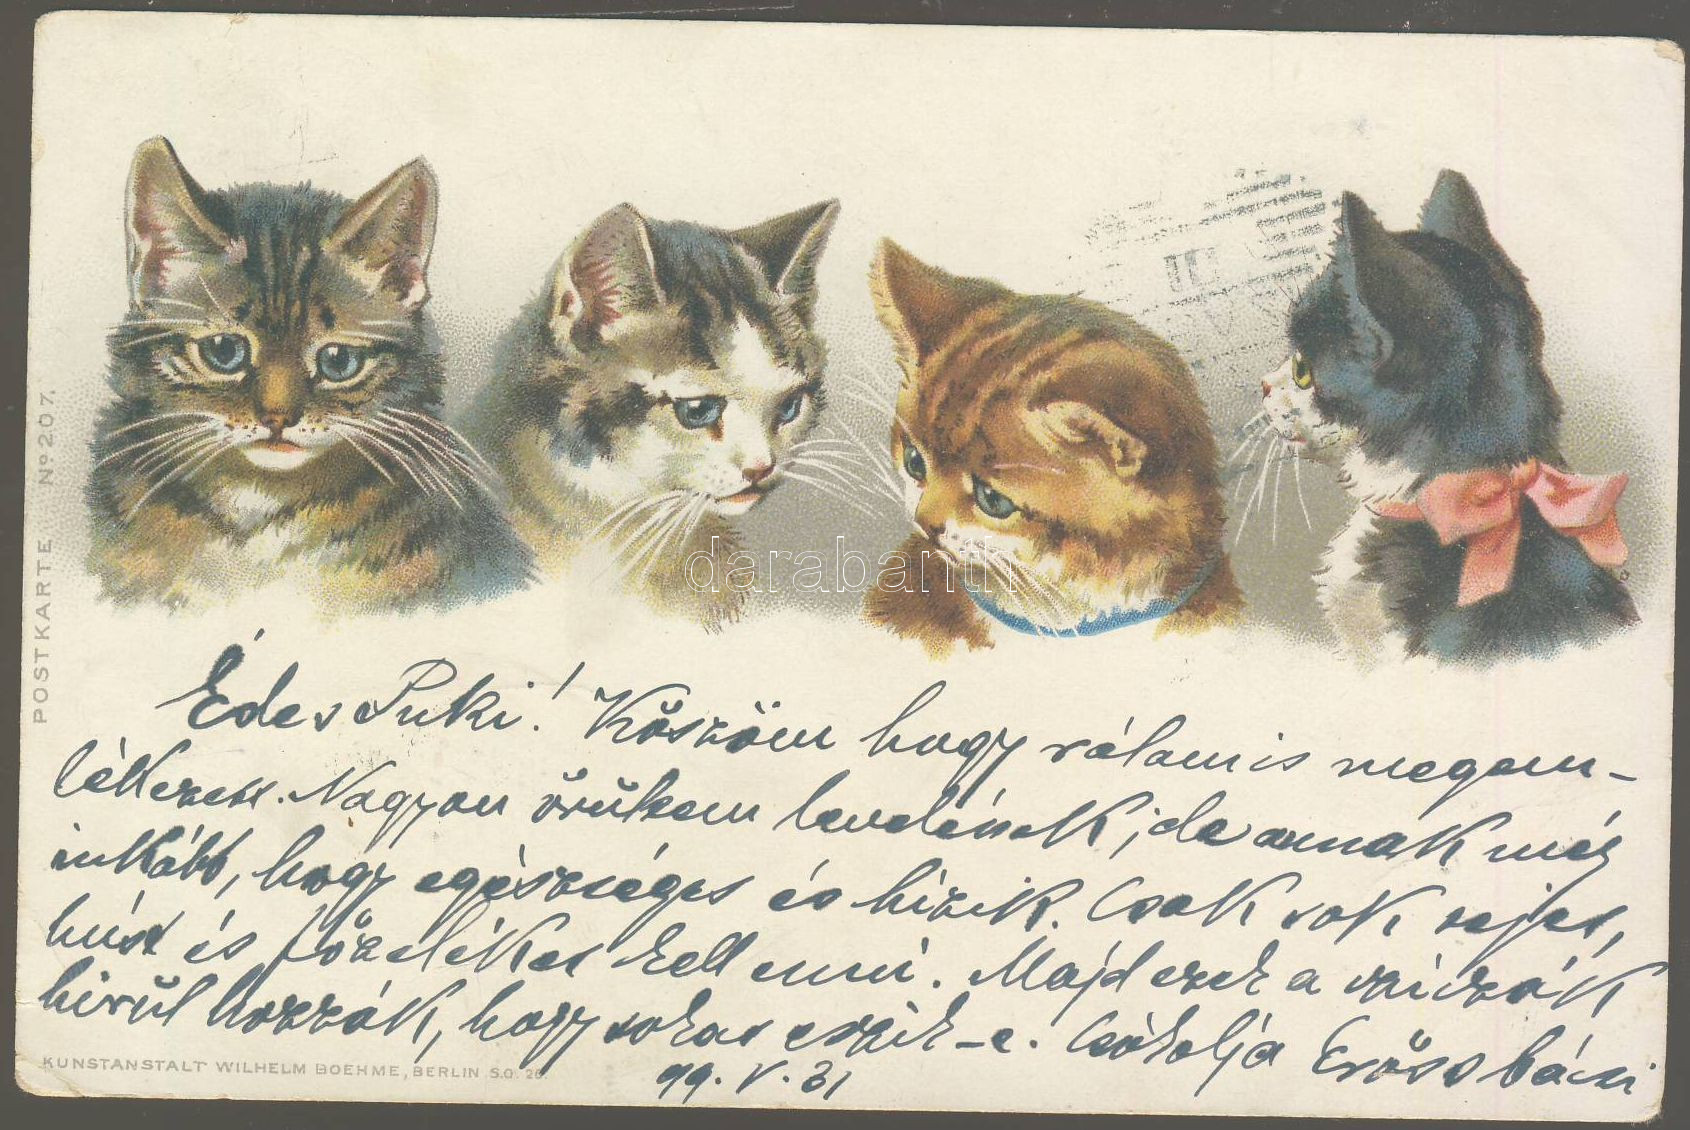 POSTKARTE Nº 207.
darabanth
Édes Puki! Köszöm hogy rálam is megem-
lékezett. Nagyon örülsem levelének, de annak még
inkább, hogy egészséges és hízik. Csak sok tejet,
húst és főzelékes kell enni. Majd ezek a cziczák
hírül hozzák, hogy sokat eszik-e. Csókolja Erőss bácsi
99. V. 31
KUNSTANSTALT WILHELM BOEHME, BERLIN S.O. 26.